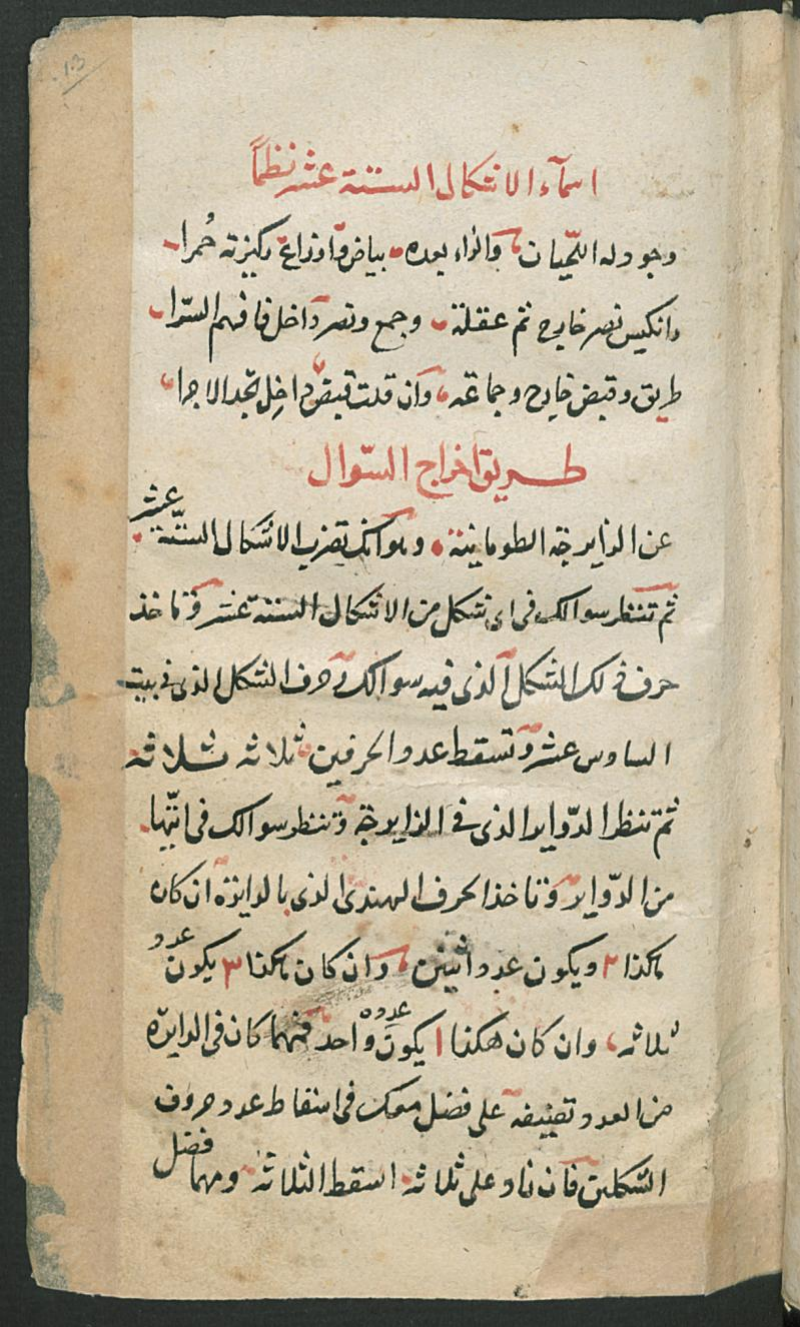 ١٠٣
اسمآء الاشكال الستة عشر نظماً
وجودله اللحيان والراء بعده بياض واوزاغ ركيزته حُمرا
وانكيس نصر خارج ثم عقلة وجمع ونصر داخل فافهم السّرا
طريق وقبض خارج وجماعة وان قلت قبض داخل تجد الاجرا
طريق اخراج السّوال
عن الزايرجة الطومانية وهو انك تضرب الاشكال الستّة عشر
ثم تنظر سوالك فى اى شكل من الاشكال الستة عشر وتاخذ
حرف ذلك الشكل الذى فيه سوالك وحرف الشكل الذى فى بيت
السادس عشر وتسقط عدد الحرفين ثلاثه ثلاثه
ثم تنظر الدّواير الذى فى الزايرجة وتنظر سوالك فى ايّها
من الدّواير وتاخذ الحرف الهندى الذى بالدايرة ان كان
هكذا ٢ ويكون عدد اثنين وان كان هكذا ٣ يكون عدد
ثلاثه وان كان هكذا ١ يكون عدده واحد فمهما كان فى الدايرة
من العدد تضيفه على فضل معك فى اسقاط عدد حروف
الشكلين فان زاد على ثلاثه اسقط الثلاثه ومهما فضل